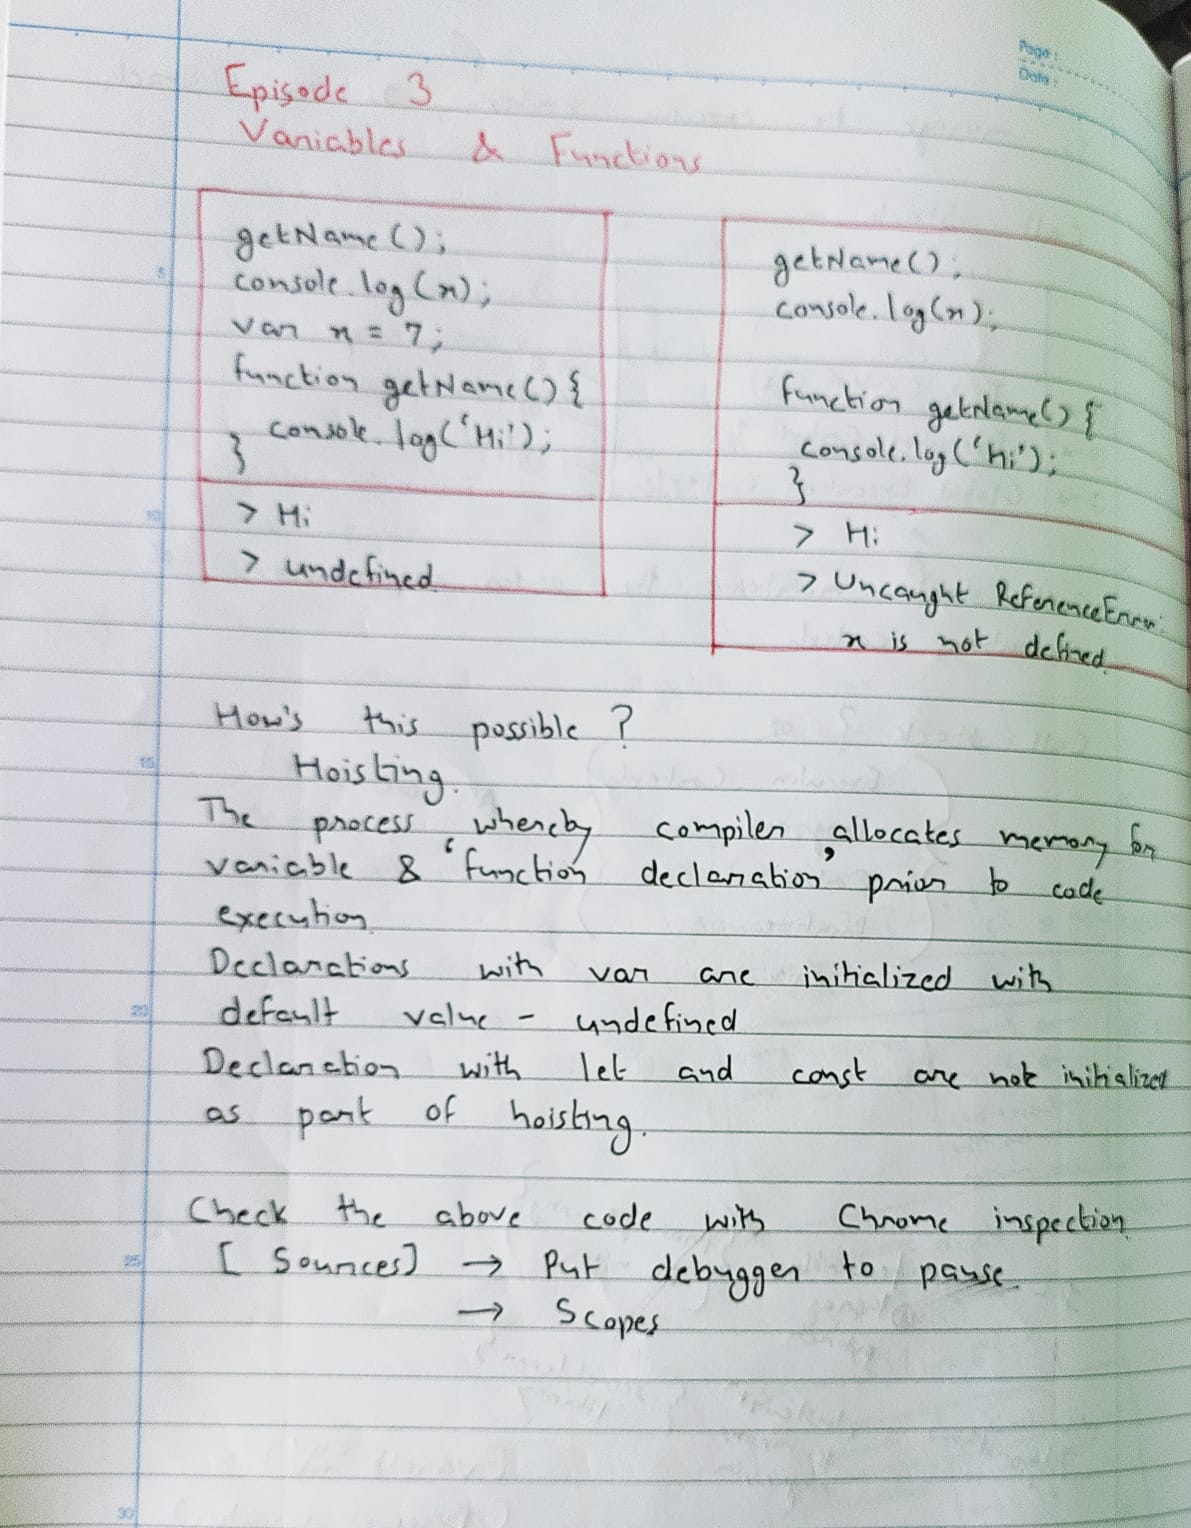 Page :
Date :
Episode 3
Variables & Functions
getName();
console.log(x);
var x = 7;
function getName() {
console.log('Hi');
}
> Hi
> undefined
getName();
console.log(x);
function getName() {
console.log('hi');
}
> Hi
> Uncaught ReferenceError:
x is not defined.
How's this possible ?
Hoisting.
The process whereby compiler allocates memory for
variable & 'function declaration' prior to code
execution.
Declarations with var are initialized with
default value - undefined
Declaration with let and const are not initialized
as part of hoisting.
Check the above code with Chrome inspection
[ Sources] → Put debugger to pause.
→ Scopes
5
10
15
20
25
30